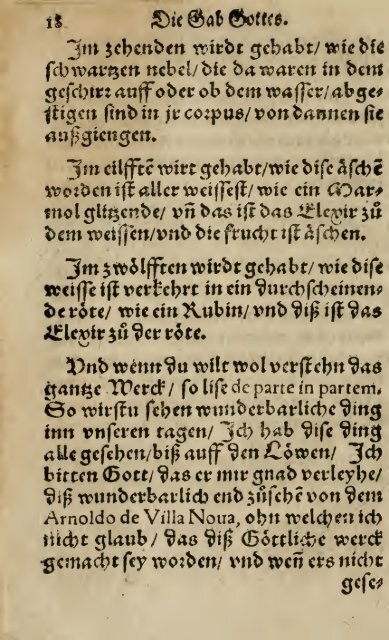 18 Die Gab Gottes.
Jm zehenden wirdt gehabt/ wie die
schwartzen nebel/ die da waren in dem
geschirr auff oder ob dem wasser/ abge⸗
stigen sind in jr corpus/ von dannen sie
außgiengen.
Jm eilfftē wirt gehabt/ wie dise äschē
worden ist aller weissest/ wie ein Mar⸗
mol glitzende/ vñ das ist das Elexir zů
dem weissen/ vnd die frucht ist äschen.
Jm zwölfften wirdt gehabt/ wie dise
weisse ist verkehrt in ein durchscheinen⸗
de röte/ wie ein Rubin/ vnd diß ist das
Elexir zů der röte.
Vnd wenn du wilt wol verstehn das
gantze Werck/ so lise de parte in partem.
So wirstu sehen wunderbarliche ding
inn vnseren tagen/ Jch hab dise ding
alle gesehen/ biß auff den Löwen/ Jch
bitten Gott/ das er mir gnad verleyhe/
diß wunderbarlich end zůsehē von dem
Arnoldo de Villa Noua, ohn welchen ich
nicht glaub/ das diß Göttliche werck
gemacht sey worden/ vnd weñ ers nicht
gese⸗